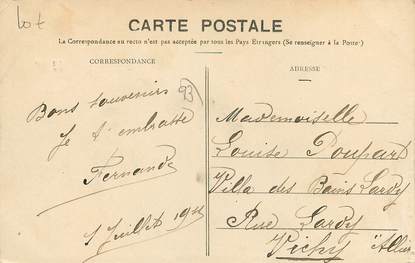 Lot
CARTE POSTALE
La Correspondance au recto n'est pas acceptée par tous les Pays Etrangers (Se renseigner à la Poste)
CORRESPONDANCE
ADRESSE
Bons souvenirs
93
Je t'embrasse
Fernande
1 Juillet
Mademoiselle
Louise Poupart
Villa des Bains Lardy
Rue Lardy
Vichy "Allier